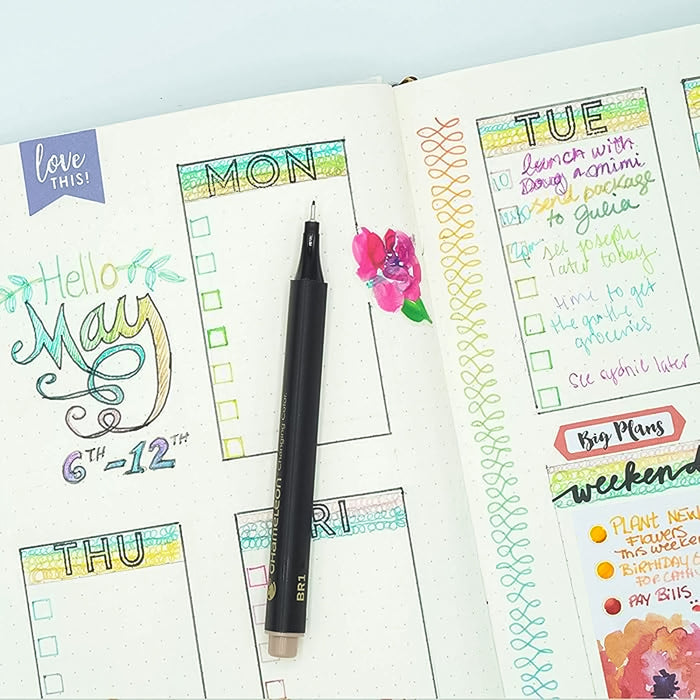 love
THIS!
Hello
May
6TH-12TH
MON
THU
RI
CHAMELEON Changing Color
BR1
TUE
lunch with
Doug & mimi
send package
to Julia
see joseph
later today
time to get
groceries
see sydnie later
Big Plans
weekend
PLANT NEW
Flowers
This weeken
BIRTHDAY
FOR CATH
PAY BILLS